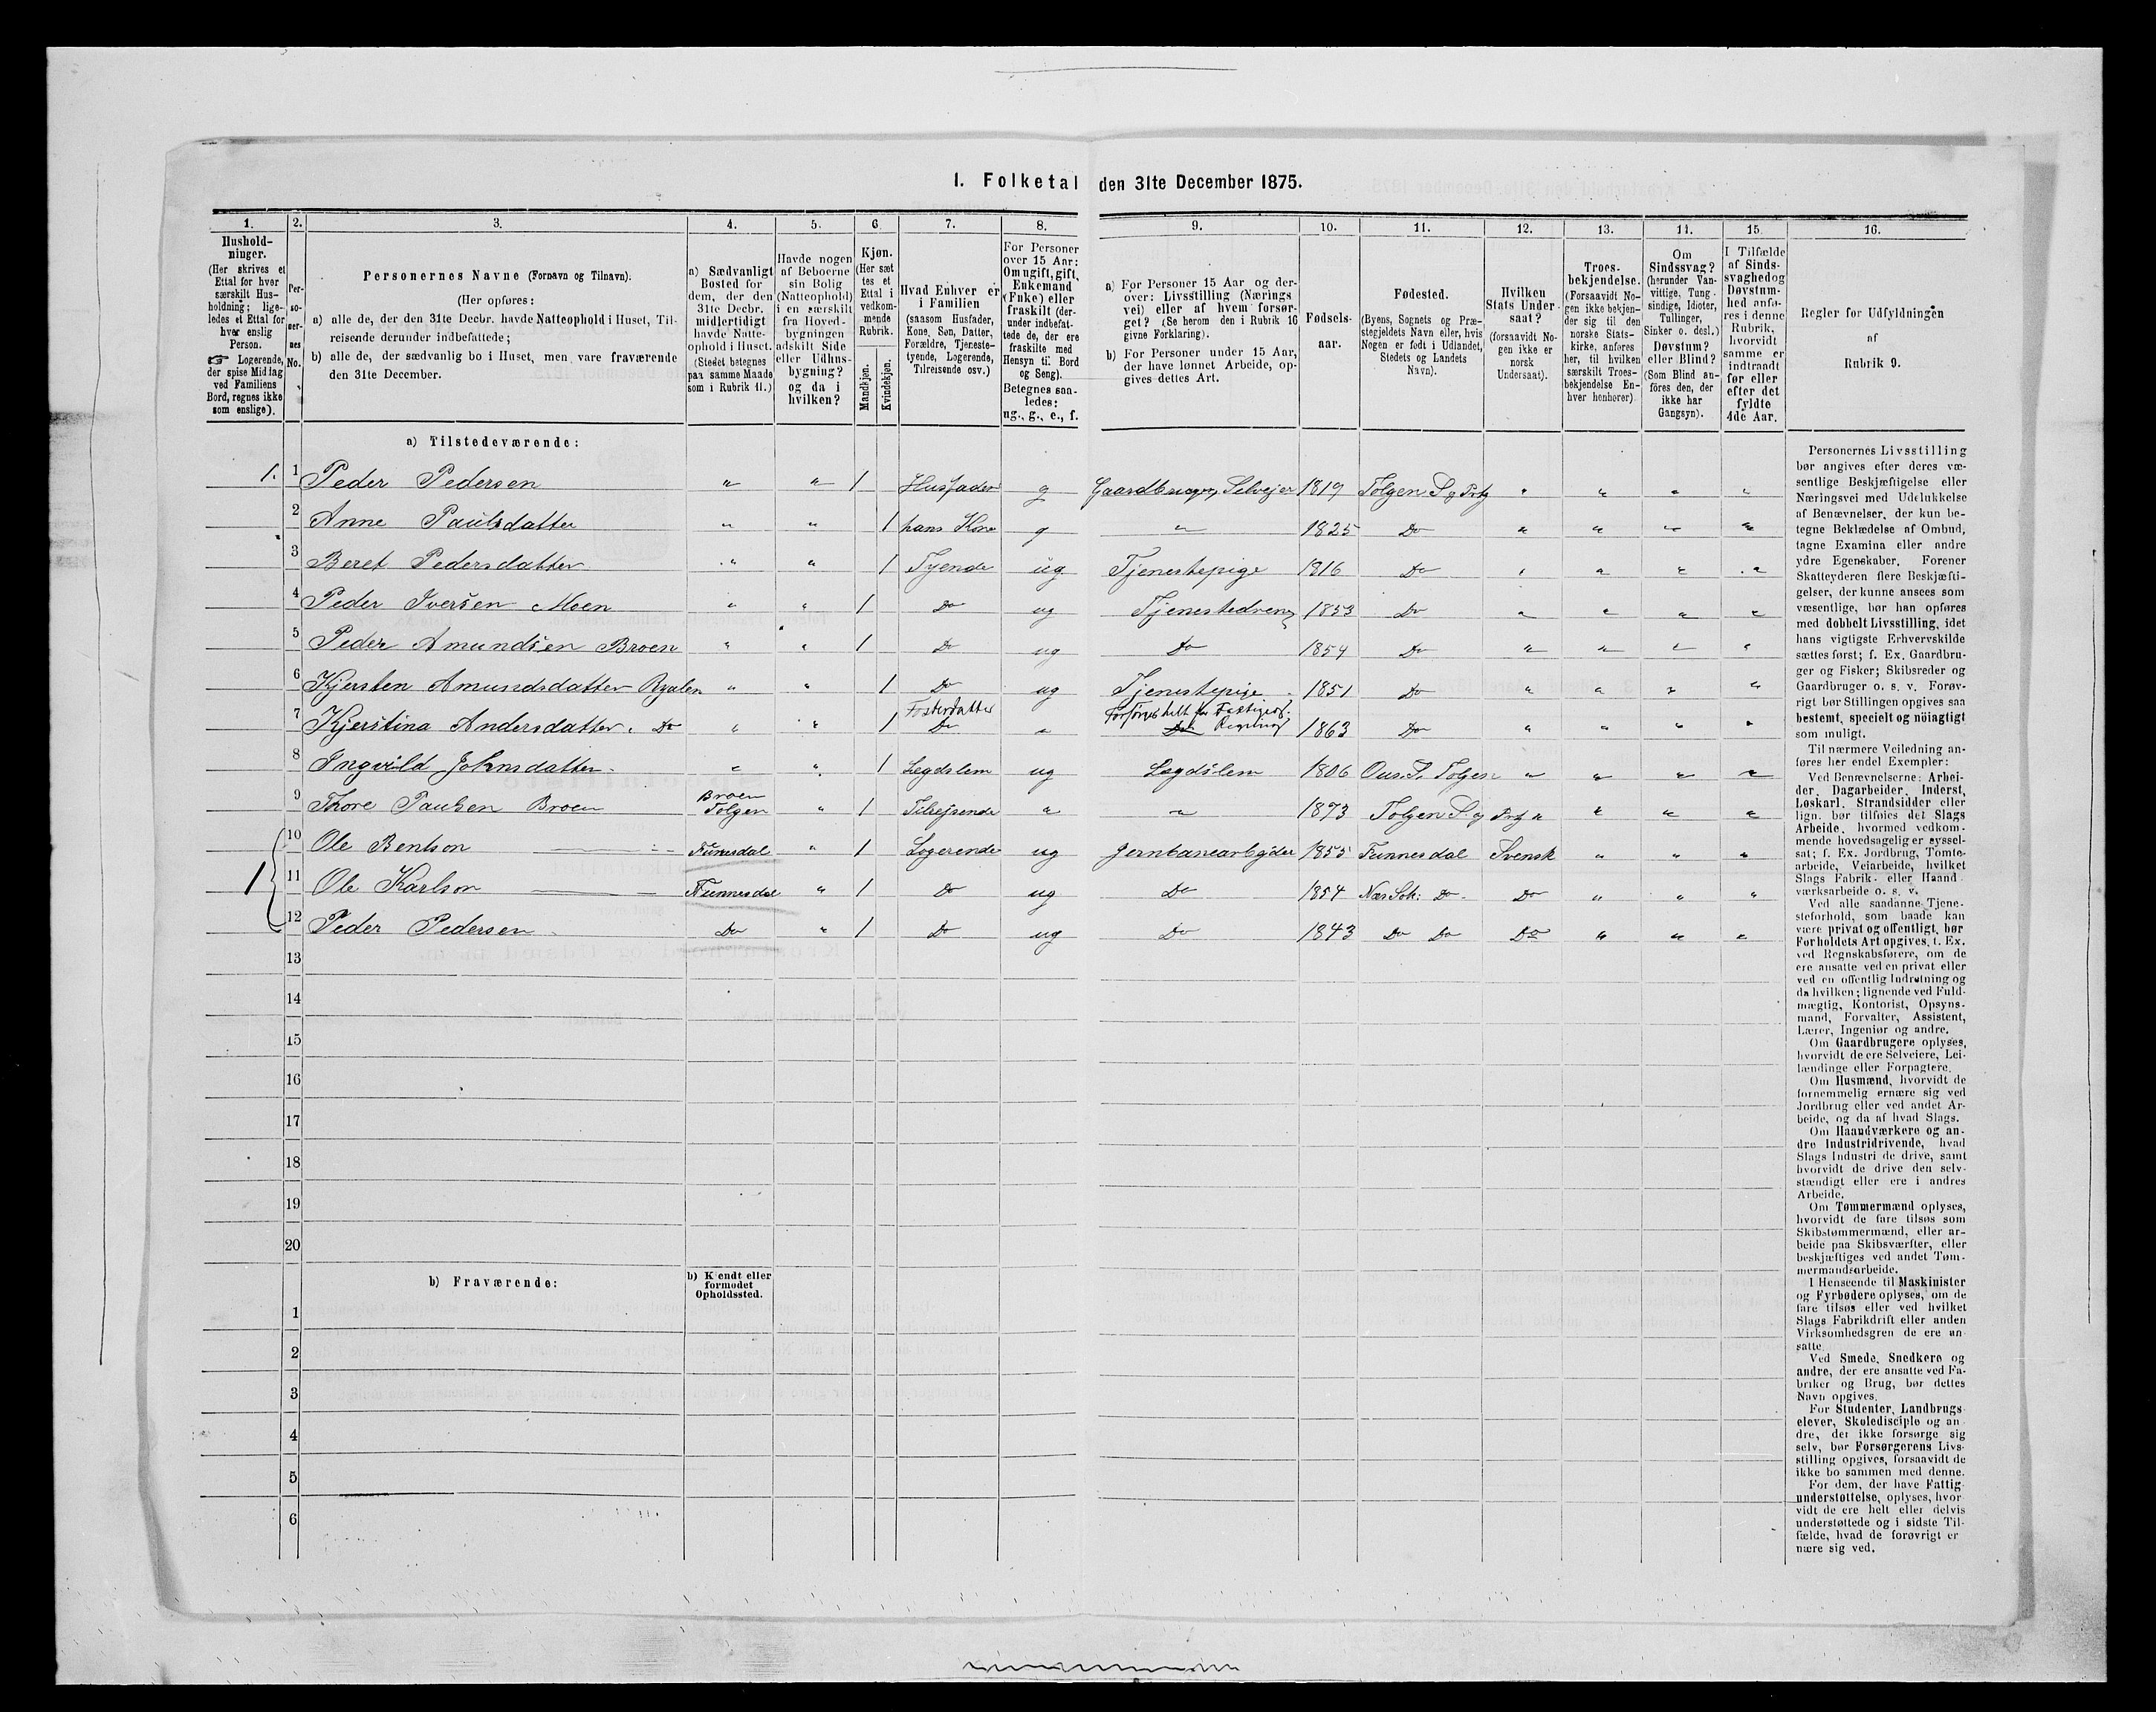 I. Folketal den 31te December 1875.
1. 2. 3. 4. 5. 6. 7. 8. 9. 10. 11. 12. 13. 14. 15. 16.
Hushold-
ninger.
(Her skrives et
Ettal for hver
særskilt Hus-
holdning; lige-
ledes et Ettal for
hver enslig
Person.
☞ Logerende,
der spise Middag
ved Familiens
Bord, regnes ikke
som enslige).
Per-
so-
ner-
nes
No.
Personernes Navne (Fornavn og Tilnavn).
(Her opføres:
a) alle de, der den 31te Decbr. havde Natteophold i Huset, Til-
reisende derunder indbefattede;
b) alle de, der sædvanlig bo i Huset, men vare fraværende
den 31te December.
a) Sædvanligt
Bosted for
dem, der den
31te Decbr.
midlertidigt
havde Natte-
ophold i Huset.
(Stedet betegnes
paa samme Maade
som i Rubrik 11.)
Havde nogen
af Beboerne
sin Bolig
(Natteophold)
i en særskilt
fra Hoved-
bygningen
adskilt Side
eller Udhus-
bygning?
og da i
hvilken?
Kjøn.
(Her sæt
tes et
Ettal i
vedkom-
mende
Rubrik.
Mandkjøn.
Kvindekjøn.
Hvad Enhver er
i Familien
(saasom Husfader,
Kone, Søn, Datter,
Forældre, Tjeneste-
tyende, Logerende,
Tilreisende osv.)
For Personer
over 15 Aar:
Om ugift, gift,
Enkemand
(Enke) eller
fraskilt (der-
under indbefat-
tede de, der ere
fraskilte med
Hensyn til Bord
og Seng).
Betegnes saa-
ledes:
ug., g., e., f.
a) For Personer 15 Aar og der-
over: Livsstilling (Nærings
vei) eller af hvem forsør-
get? (Se herom den i Rubrik 16
givne Forklaring).
b) For Personer under 15 Aar,
der have lønnet Arbeide, op-
gives dettes Art.
Fødsels-
aar.
Fødested.
(Byens, Sognets og Præ-
stegjeldets Navn eller, hvis
Nogen er født i Udlandet,
Stedets og Landets
Navn).
Hvilken
Stats Under-
saat?
(forsaavidt No-
gen ikke er
norsk
Undersaat).
Troes-
bekjendelse.
(Forsaavidt No-
gen ikke bekjen-
der sig til den
norske Stats-
kirke, anføres
her, til hvilken
særskilt Troes-
bekjendelse En-
hver henhører)
Om
Sindssvag?
(herunder Van-
vittige, Tung-
sindige, Idioter,
Tullinger,
Sinker o. desl.)
Døvstum?
eller Blind?
(Som Blind an-
føres den, der
ikke har
Gangsyn).
I Tilfælde
af Sinds-
svaghed og
Døvstum-
hed anfø-
res i denne
Rubrik,
hvorvidt
samme er
indtraadt
før eller
efter det
fyldte
4de Aar.
Regler for Udfyldningen
af
Rubrik 9.
a) Tilstedeværende:
1. 1 Peder Pedersen " " 1 Husfader g Gaardbruger, Selvejer 1819 Tolgen S og Prtg " " " "
2 Anne Paulsdatter " " 1 hans Kone g " 1825 Do " " " "
3 Beret Pedersdatter " " 1 Tyende ug Tjenestepige 1816 Do " " " "
4 Peder Iversen Moen " " 1 Do ug Tjenestedreng 1853 Do " " " "
5 Peder Amundsen Broen " " 1 Do ug Do 1854 Do " " " "
6 Kjersten Amundsdatter Ryalen " " 1 Do ug Tjenestepige 1851 Do " " " "
7 Kjerstina Andersdatter Do " " 1 Fosterdatter Do " Forsørges helt for Fattigves. Regning Do 1863 Do " " " "
8 Ingvild Johnsdatter " " 1 Lægdslem ug Lægdslem 1806 Ous. S. Tolgen " " " "
9 Thore Paulsen Broen Broen Tolgen " 1 Tilrejsende " " 1873 Tolgen S. og Prtg " " " "
1 10 Ole Bentson Funnesdal " 1 Logerende ug Jernbanearbejder 1855 Funnesdal Svensk " " "
11 Ole Karlson Funnesdal " 1 Do ug Do 1854 Næs Sok: Do Do " " "
12 Peder Pedersen Do " 1 Do ug Do 1843 Do Do Do " " "
13
14
15
16
17
18
19
20
b) Fraværende:
b) Kendt eller
formodet
Opholdssted.
1
2
3
4
5
6
Personernes Livsstilling
bør angives efter deres væ-
sentlige Beskjæftigelse eller
Næringsvei med Udelukkelse
af Benævnelser, der kun be-
tegne Beklædelse af Ombud,
tagne Examina eller andre
ydre Egenskaber. Forener
Skatteyderen flere Beskjæfti-
gelser, der kunne ansees som
væsentlige, bør han opføres
med dobbelt Livsstilling, idet
hans vigtigste Erhvervskilde
sættes først; f. Ex. Gaardbru-
ger og Fisker; Skibsreder og
Gaardbruger o. s. v. Forøv-
rigt bør Stillingen opgives saa
bestemt, specielt og nöiagtigt
som muligt.
Til nærmere Veiledning an-
føres her endel Exempler:
Ved Benævnelserne: Arbei-
der, Dagarbeider, Inderst,
Løskarl, Strandsidder eller
lign. bør tilføies det Slags
Arbeide, hvormed vedkom-
mende hovedsagelig er syssel-
sat; f. Ex. Jordbrug, Tomte-
arbeide, Veiarbeide, hvilket
Slags Fabrik- eller Haand-
værksarbeide o. s. v.
Ved alle saadanne Tjene-
steforhold, som baade kan
være privat og offentligt, bør
Forholdets Art opgives, f. Ex.
ved Regnskabsførere, om de
ere ansatte ved en privat eller
ved en offentlig Indretning og
da hvilken; lignende ved Fuld-
mægtig, Kontorist, Opsyns-
mand, Forvalter, Assistent,
Lærer, Ingeniør og andre.
Om Gaardbrugere oplyses,
hvorvidt de ere Selveiere, Lei-
lændinge eller Forpagtere.
Om Husmænd, hvorvidt de
fornemmelig ernære sig ved
Jordbrug eller ved andet Ar-
beide, og da af hvad Slags.
Om Haandværkere og an-
dre Industridrivende, hvad
Slags Industri de drive, samt
hvorvidt de drive den selv-
stændigt eller ere i andres
Arbeide.
Om Tømmermænd oplyses,
hvorvidt de fare tilsøs som
Skibstømmermænd, eller ar-
beide paa Skibsværfter, eller
beskjæftiges ved andet Tøm-
mermandsarbeide.
I Henseende til Maskinister
og Fyrbødere oplyses, om de
fare tilsøs eller ved hvilket
Slags Fabrikdrift eller anden
Virksomhedsgren de ere an-
satte.
Ved Smede, Snedkere og
andre, der ere ansatte ved Fa-
briker og Brug, bør dettes
Navn opgives.
For Studenter, Landbrugs-
elever, Skoledisciple og an-
dre, der ikke forsørge sig
selv, bør Forsørgerens Livs-
stilling opgives, forsaavidt de
ikke bo sammen med denne.
For dem, der have Fattig-
understøttelse, oplyses, hvor-
vidt de ere helt eller delvis
understøttede og i sidste Til-
fælde, hvad de forøvrigt er
nære sig ved.